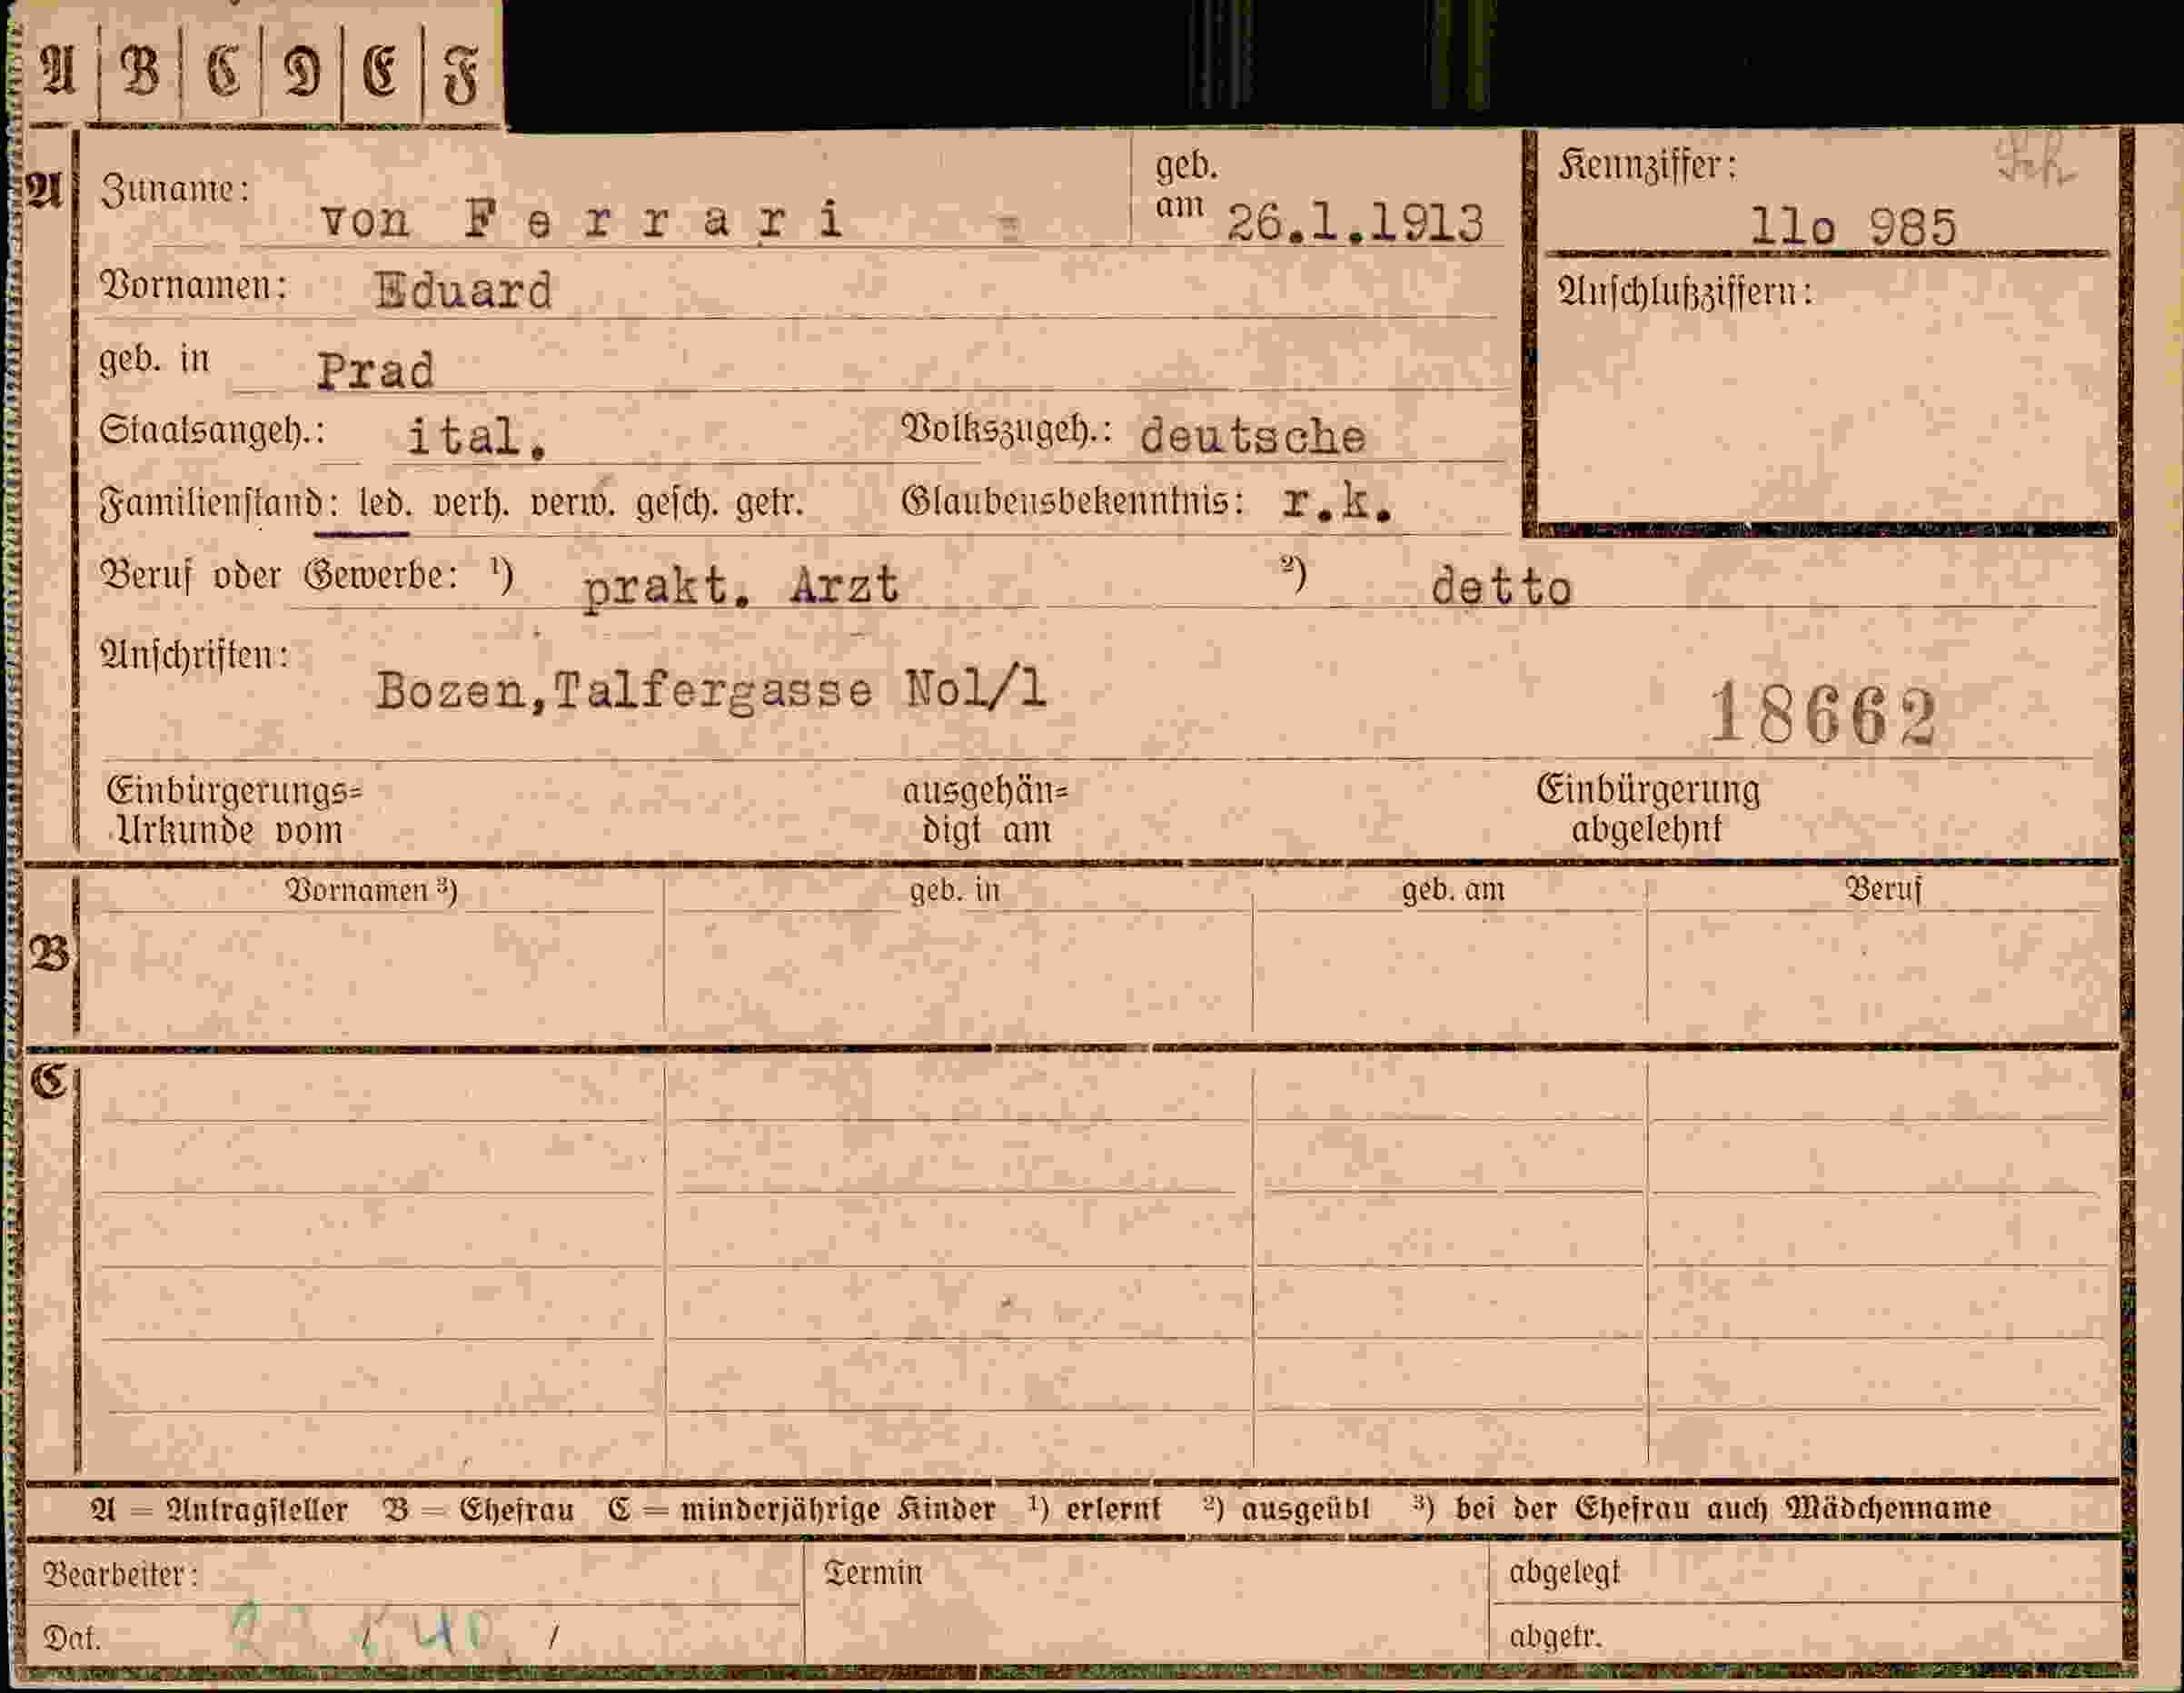 A B C D E F
A Zuname: von Ferrari geb. am 26.1.1913 Kennziffer: 11o 985
Vornamen: Eduard Anschlußziffern:
geb. in Prad
Staatsangeh.: ital. Volkszugeh.: deutsche
Familienstand: led. verh. verw. gesch. getr. Glaubensbekenntnis: r.k.
Beruf oder Gewerbe: ¹) prakt. Arzt ²) detto
Anschriften: Bozen,Talfergasse No1/1
18662
Einbürgerungs= ausgehän= Einbürgerung
Urkunde vom digt am abgelehnt
Vornamen ³) geb. in geb. am Beruf
B
C
A = Antragsteller B = Ehefrau C = minderjährige Kinder ¹) erlernt ²) ausgeübt ³) bei der Ehefrau auch Mädchenname
Bearbeiter: Termin abgelegt
Dat. abgetr.